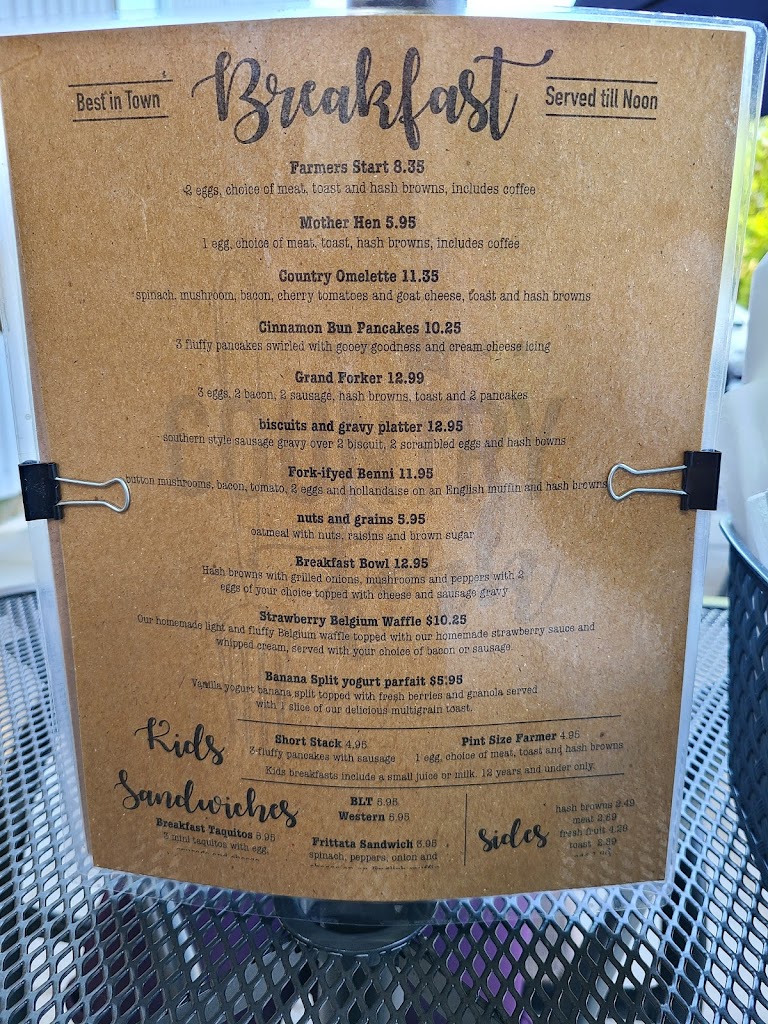 Best in Town
Breakfast
Served till Noon
Farmers Start 8.35
2 eggs, choice of meat, toast and hash browns, includes coffee
Mother Hen 5.95
1 egg, choice of meat, toast, hash browns, includes coffee
Country Omelette 11.35
spinach, mushroom, bacon, cherry tomatoes and goat cheese, toast and hash browns
Cinnamon Bun Pancakes 10.25
3 fluffy pancakes swirled with gooey goodness and cream cheese icing
Grand Forker 12.99
3 eggs, 2 bacon, 2 sausage, hash browns, toast and 2 pancakes
biscuits and gravy platter 12.95
southern style sausage gravy over 2 biscuit, 2 scrambled eggs and hash bowns
Fork-ifyed Benni 11.95
button mushrooms, bacon, tomato, 2 eggs and hollandaise on an English muffin and hash browns
nuts and grains 5.95
oatmeal with nuts, raisins and brown sugar
Breakfast Bowl 12.95
Hash browns with grilled onions, mushrooms and peppers with 2
eggs of your choice topped with cheese and sausage gravy
Strawberry Belgium Waffle $10.25
Our homemade light and fluffy Belgium waffle topped with our homemade strawberry sauce and
whipped cream, served with your choice of bacon or sausage
Banana Split yogurt parfait $5.95
Vanilla yogurt banana split topped with fresh berries and granola served
with 1 slice of our delicious multigrain toast.
Kids
Short Stack 4.95
3 fluffy pancakes with sausage
Pint Size Farmer 4.95
1 egg, choice of meat, toast and hash browns
Kids breakfasts include a small juice or milk. 12 years and under only.
Sandwiches
Breakfast Taquitos
3 mini taquitos with egg,
BLT
Western
Frittata Sandwich
spinach, peppers, onion and
sides
hash browns 2.49
meat 2.69
fresh fruit
toast